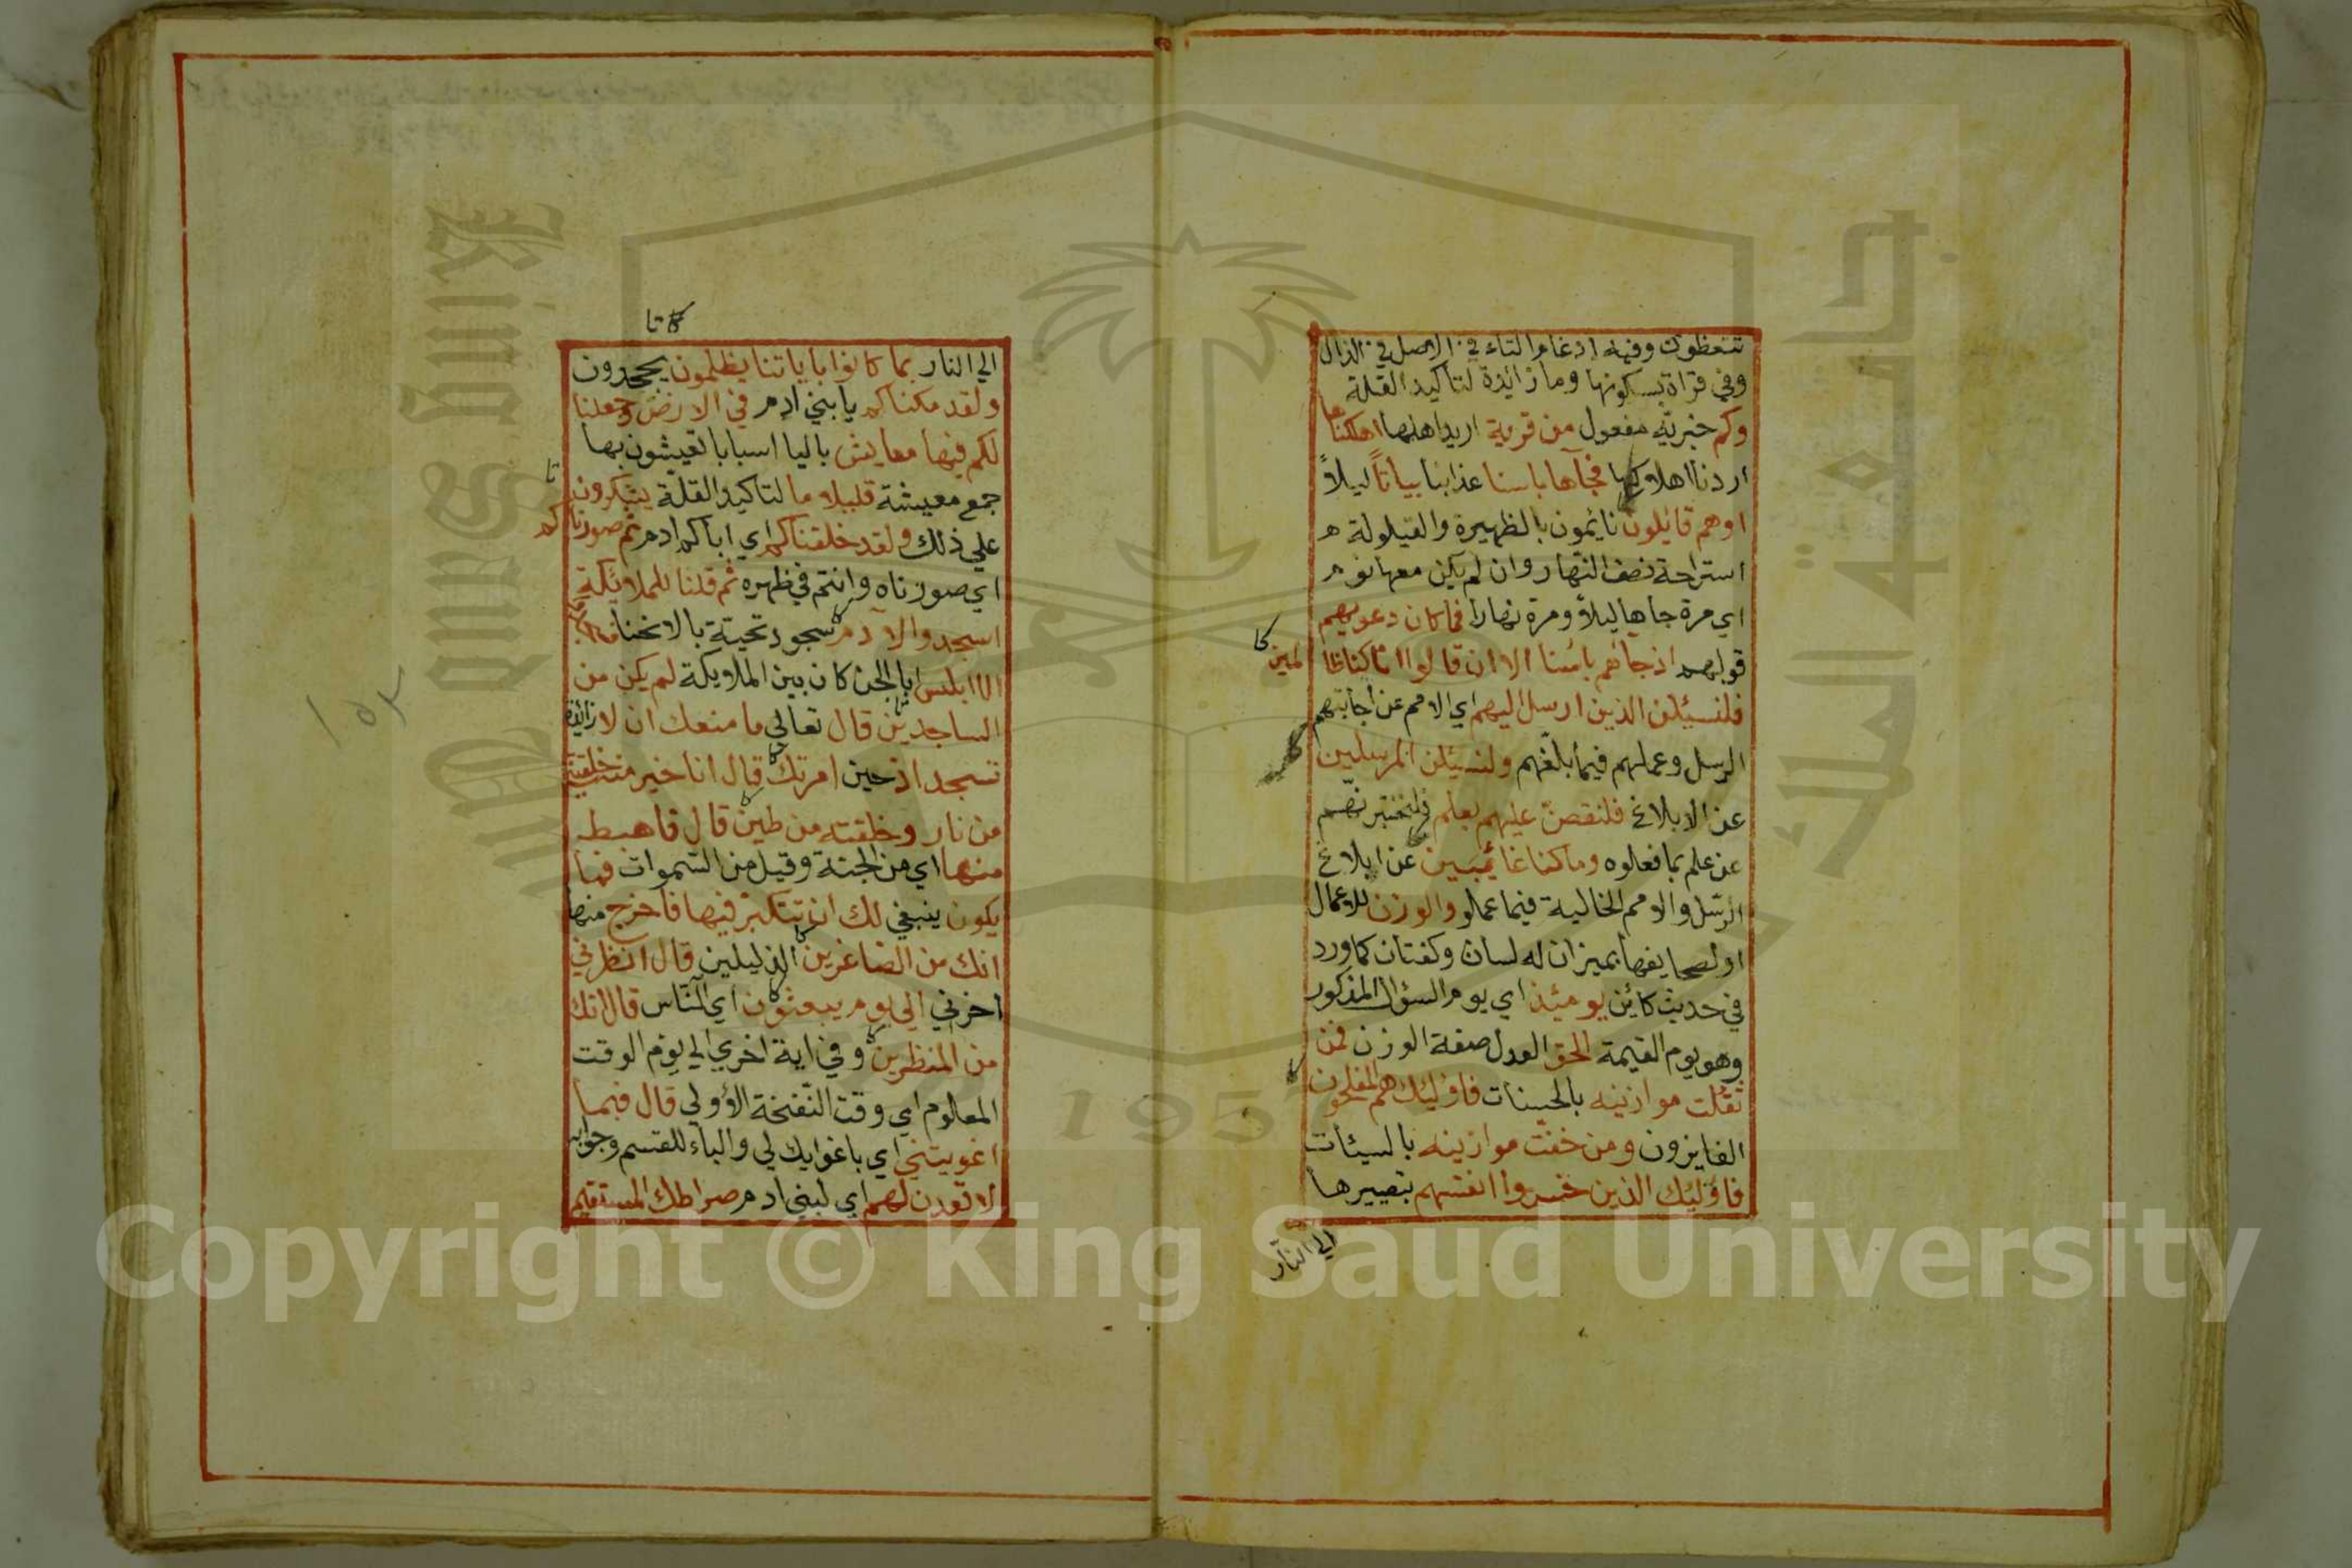 تتعظون وفيه ادغام التاء في الاصل في الذال
وفي قراة بسكونها وما زائدة لتاكيد القلة
وكم خبريّة مفعول من قرية اريد اهلها اهلكناها
اردنا اهلاكها فجآها باسنا عذابنا بياتاً ليلاً
اوهم قايلون نايمون بالظهيرة والقيلولة
استراحة نصف النهار وان لم يكن معها نوم
اي مرة جاها ليلاً ومرة نهارا فما كان دعويهم
قولهم اذ جاءهم باسنا الا ان قالوا انا كنا ظا
لمين
فلنسئلن الذين ارسل اليهم اي الامم عن اجابتهم
الرسل وعملهم فيما بلّغهم ولنسئلن المرسلين
عن الابلاغ فلنقصنّ عليهم بعلم لنخبرنهم
عن علم بما فعلوه وما كنا غائبين عن ابلاغ
الرسل والامم الخالية فيما عملو والوزن للاعمال
او لصحايفها بميزان له لسان وكفتان كما ورد
في حديث كائن يومئذ اي يوم السؤال المذكور
وهو يوم القيمة الحق العدل صفة الوزن فمن
ثقلت موازينه بالحسنات فاولئك هم المفلحون
الفايزون ومن خفت موازينه بالسيئات
فاولئك الذين خسروا انفسهم بتصييرها
الي النار
كا تا
الي النار بما كانوا باياتنا يظلمون يجحدون
ولقد مكناكم يا بني ادم في الارض وجعلنا
لكم فيها معايش باليا اسبابا تعيشون بها
جمع معيشة قليلا ما لتاكيد القلة يشكرون
علي ذلك ولقد خلقناكم اي اباكم ادم ثم صورنا
كم
اي صورناه وانتم في ظهره ثم قلنا للملائكة
اسجدوا لآدم سجود تحية بالانحنا
الا ابليس ابا الجن كان بين الملايكة لم يكن من
الساجدين قال تعالي ما منعك ان لا زائدة
تسجد اذ حين امرتك قال انا خير منه خلقتني
من نار وخلقته من طين قال فاهبط
منها اي من الجنة وقيل من السموات فما
يكون ينبغي لك ان تتكبر فيها فاخرج منها
انك من الصاغرين الذليلين قال انظرني
اخرني الي يوم يبعثون اي الناس قال انك
من المنظرين وفي اية اخري الي يوم الوقت
المعلوم اي وقت النّفخة الأولي قال فبما
اغويتني اي باغوايك لي والباء للقسم وجوابه
لا قعدن لهم اي لبني ادم صراطك المستقيم
Copyright © King Saud University
195